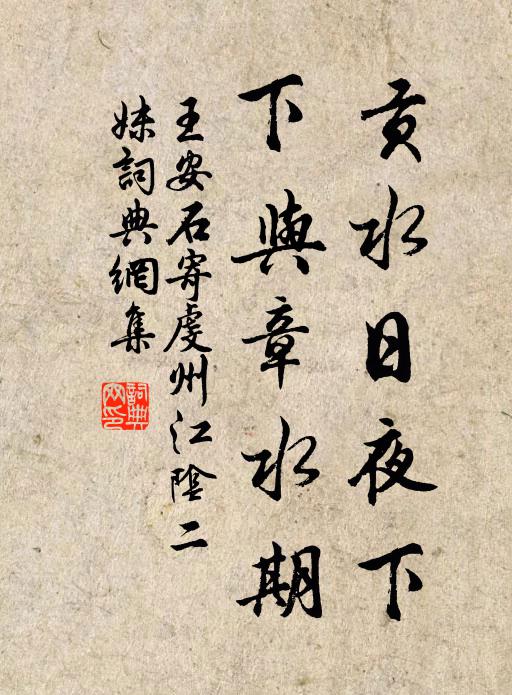 貢水日夜下
下與章水期
王安石寄虔州江陰二
妹詞典網集
詞典網印